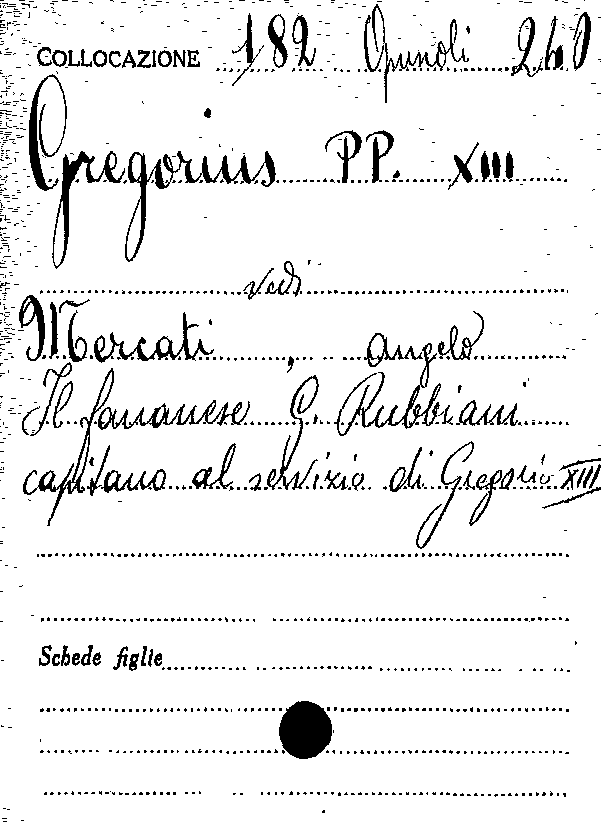 COLLOCAZIONE 182 Opuscoli 240
Gregorius PP. XIII
vedi
Mercati, Angelo
Il fananese G. Rubbiani
capitano al servizio di Gregorio XIII
Schede figlie